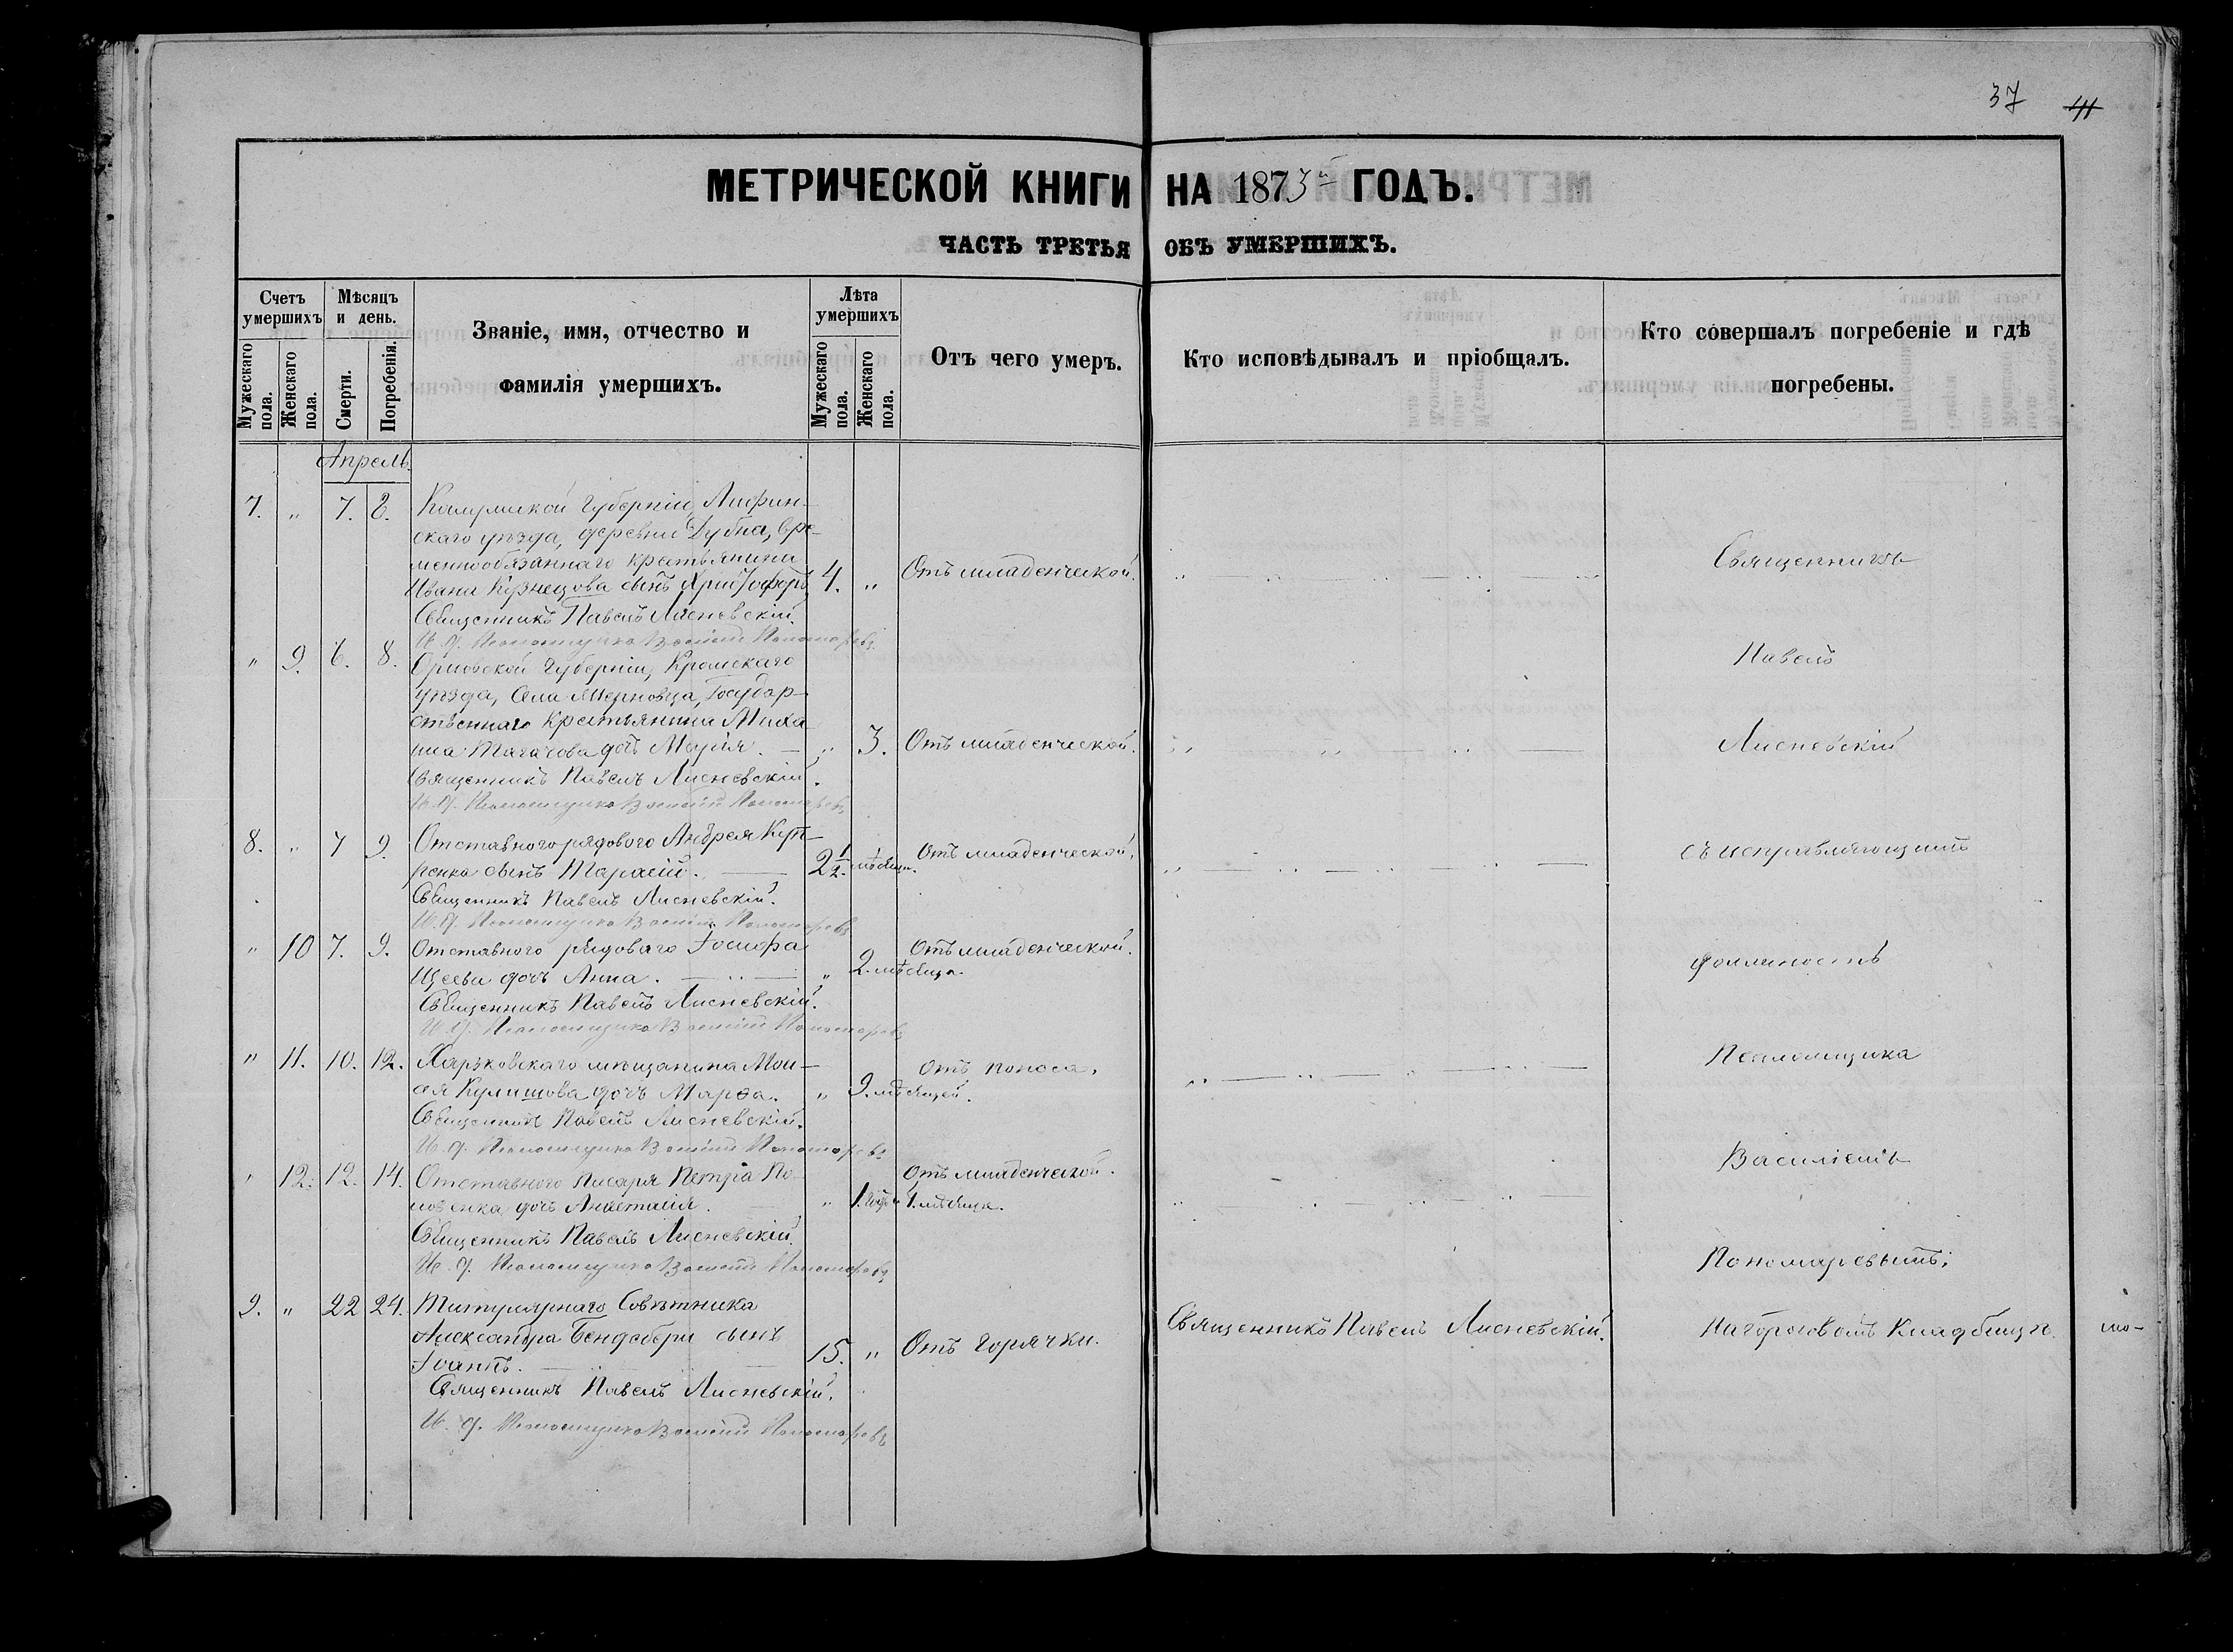 37 41
МЕТРИЧЕСКОЙ КНИГИ НА 1873й ГОДЪ.
ЧАСТЬ ТРЕТЬЯ ОБЪ УМЕРШИХЪ.
Счетъ умершихъ
Мужескаго пола.
Женскаго пола.
Мѣсяцъ и день.
Смерти.
Погребенія.
Званіе, имя, отчество и фамилія умершихъ.
Лѣта умершихъ
Мужескаго пола.
Женскаго пола.
Отъ чего умеръ.
Кто исповѣдывалъ и пріобщалъ.
Кто совершалъ погребеніе и гдѣ погребены.
Апрель.
7. " 7. 8. Губерніи,
скаго уѣзда, деревни Дубна, вре-
меннообязаннаго крестьянина
Ивана Кузнецова сынъ Христофоръ 4. " Отъ младенческой.
Священникъ Павелъ Лисневскій.
И. д. Псаломщика Василій Пономаревъ
" 9. 6. 8. Орловской Губерніи, Кромскаго
уѣзда, Села Государ-
ственнаго крестьянина Миха-
ила дочь Марія. " 3. Отъ младенческой.
Священникъ Павелъ Лисневскій.
И. д. Псаломщика Василій Пономаревъ
8. " 7 9. Отставного рядового Андрея Куп-
ренка сынъ Тарасій. 2 1/2 мѣсяца. Отъ младенческой.
Священникъ Павелъ Лисневскій.
И. д. Псаломщика Василій Пономаревъ
" 10 7. 9. Отставного рядоваго Іосифа
дочь Анна. " 2. мѣсяца. Отъ младенческой.
Священникъ Павелъ Лисневскій.
И. д. Псаломщика Василій Пономаревъ
" 11. 10. 12. Харьковскаго мѣщанина Мои-
сея Кулишова дочь Марѳа. " 9. мѣсяцей. Отъ поноса.
Священникъ Павелъ Лисневскій.
И. д. Псаломщика Василій Пономаревъ
" 12. 12. 14. Отставного Писаря Петра По-
повенка дочь Анастасія. " 1. годъ и 1. мѣсяца. Отъ младенческой.
Священникъ Павелъ Лисневскій.
И. д. Псаломщика Василій Пономаревъ
9. " 22 24. Титулярнаго Совѣтника
Александра Бендебери сынъ
Іоаннъ. 15. " Отъ горячки. Священникъ Павелъ Лисневскій.
Священникъ Павелъ Лисневскій.
И. д. Псаломщика Василій Пономаревъ
Священникъ
Павелъ
Лисневскій
съ исправляющимъ
должность
Псаломщика
Василіемъ
Пономаревымъ;
На городовомъ Кладбищѣ.